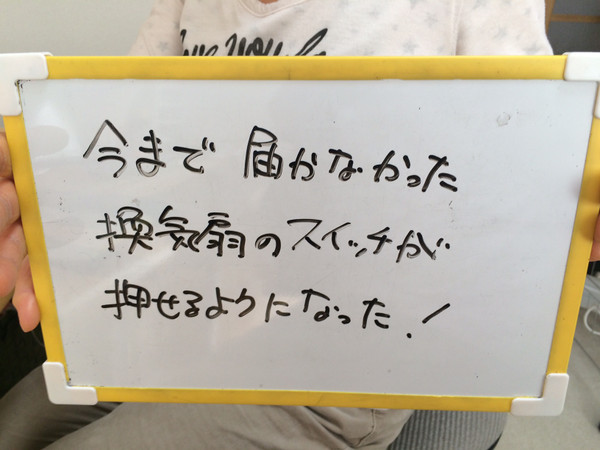 love you
今まで届かなかった
換気扇のスイッチが
押せるようになった!